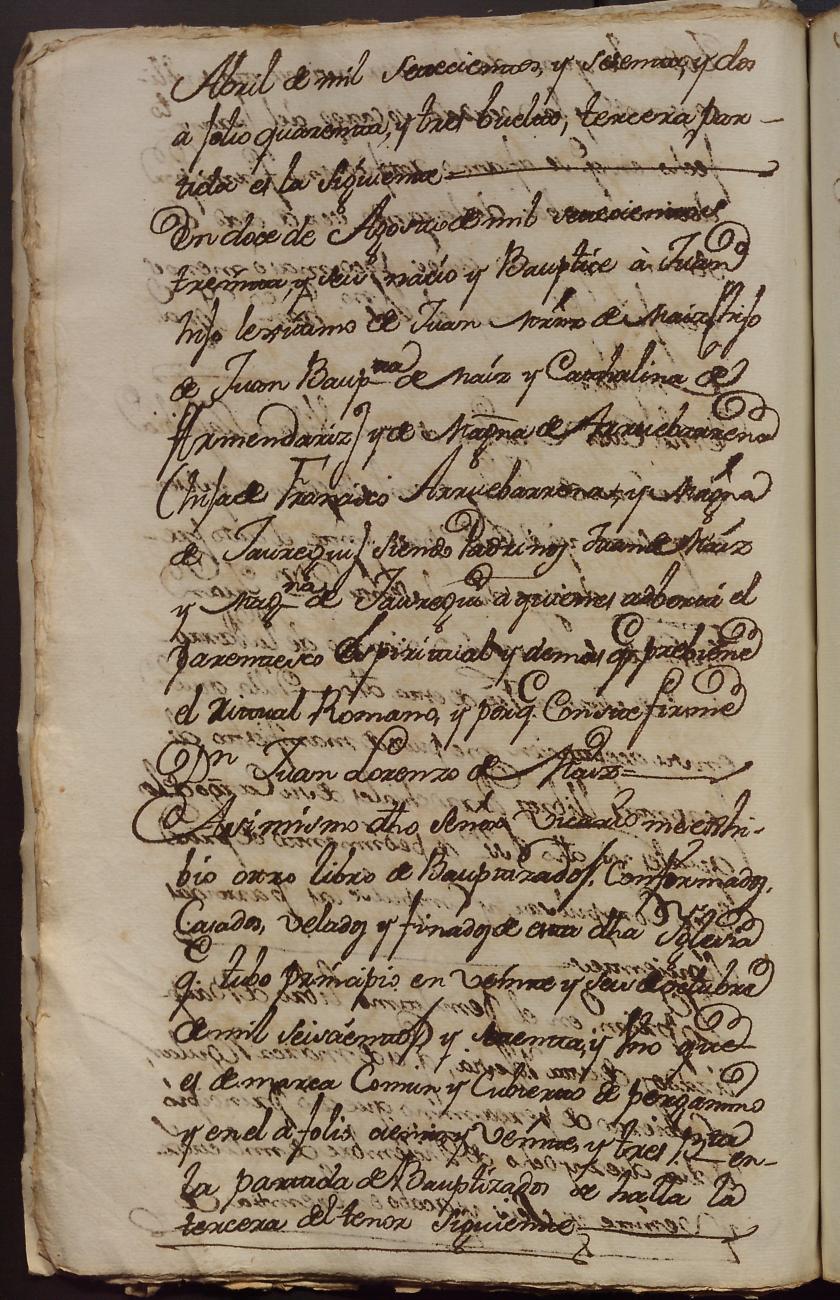 Abril de mil setecientos, y setenta, y dos
à folio quarenta, y tres buelto, tercera par-
tida es la siguiente
En doce de Agosto de mil setecientos
treinta, y seis nacio y Bauptice à Juan
hijo lexitimo de Juan Mrn̄ de Maiz (hijo
de Juan Baup.ta de Maíz y Cathalina de
Armendariz) y de Mag̃na de Arruebarrena
(hija de Francisco Arruebarrena, y Mag̃na
de Jauregui) siendo Padrinos Juan de Maíz
y Mag.na de Jauregui à quienes adberti el
parentesco Espiritual y demàs q. prebiene
el Ritual Romano, y porq. Conste firmè
Dn Juan Lorenzo de Maiz=
Asimismo dho señor Vicario me exhi-
bio otro libro de Bauptizados, Conformados,
Casados, velados y finados de esta dha Iglesia
q. tubo principio en veinte y seis de octubre
de mil seiscientos y setenta, y uno que
es de marca Comun y Cubierto de pergamino
y en el à folio ciento y veinte, y tres en-
la partida de Bauptizados se halla la
tercera del tenor siguiente